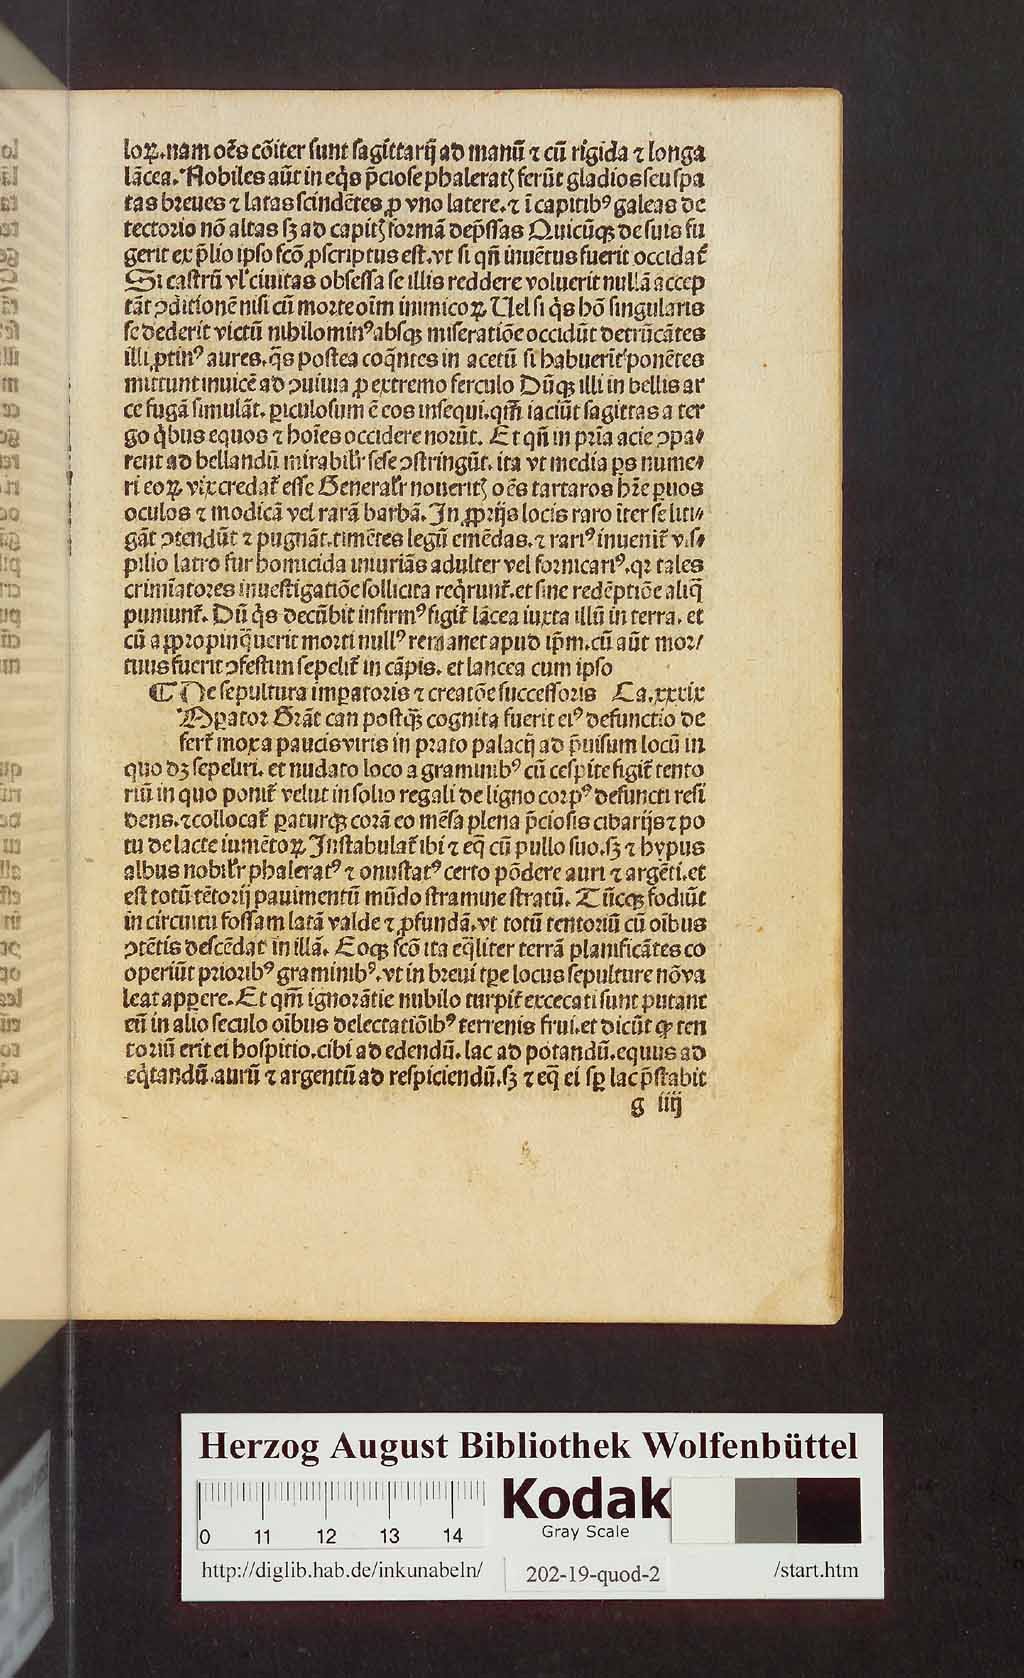 loꝝ. nam oēs cōiter sunt sagittarij ad manū ⁊ cū rigida ⁊ longa
lācea. Nobiles aūt in eq̇s p̄ciose phalerat᷒ ferūt gladios seu spa
tas breues ⁊ latas scindētes ꝓ vno latere. ⁊ ī capitibꝰ galeas de
tectorio nō altas sꝫ ad capit᷒ formā dep̄ssas Quicūqꝫ de suis fu
gerit ex p̄lio ipso fcō ꝓscriptus est. vt si qn̄ inuētus fuerit occidat᷑
Si castrū vl᷑ ciuitas obsessa se illis reddere voluerit nullā accep
tāt ↄditionē nisi cū morte oīm inimicoꝝ. Uel si q̇s hō singularis
se dederit victū nihilominꝰ absqꝫ miseratiōe occidūt detrūcātes
illi ꝓtinꝰ aures. q̄s postea coq̄ntes in acetū si habuerīt ponētes
mittunt inuicē ad ↄuiuia ꝓ extremo ferculo Dūqꝫ illi in bellis ar
ce fugā simulāt. ꝑiculosum ē eos insequi. qm̄ iaciūt sagittas a ter
go q̇bus equos ⁊ hoīes occidere norūt. Et qn̄ in prīa acie ↄpa⸗
rent ad bellandū mirabilr᷑ sese ↄstringūt. ita vt media ps nume⸗
ri eoꝝ vix credat᷑ esse Generalr᷑ nouerit᷒ oēs tartaros hr̄e ꝑuos
oculos ⁊ modicā vel rarā barbā. In ꝓprijs locis raro īter se liti⸗
gāt ↄtendūt ⁊ pugnāt. timētes legū emēdas. ⁊ rariꝰ inuenit᷑ vis⸗
pilio latro fur homicida iniuriās adulter vel fornicariꝰ. qꝛ tales
crimīatores inuestigatiōe sollicita reqrunt᷑. et sine redēptiōe aliq̄
puniunt᷑. Dū q̇s decūbit infirmꝰ figit᷑ lācea iuxta illū in terra. et
cū appropinq̄uerit morti nullꝰ remanet apud ip̄m. cū aūt mor⸗
tuus fuerit ↄfestim sepelit᷑ in cāpis. et lancea cum ipso
¶ De sepultura imꝑatoris ⁊ creatōe successoris Ca. xxxix
IMꝑator Grāt can postq̄ꝫ cognita fuerit eiꝰ defunctio de
fert᷑ mox a paucis viris in prato palacij ad p̄uisum locū in
quo dꝫ sepeliri. et nudato loco a graminibꝰ cū cespite figit᷑ tento
riū in quo ponit᷑ velut in solio regali de ligno corpꝰ defuncti resi
dens. ⁊ collocat᷑ ꝑaturqꝫ corā eo mēsa plena p̄ciosis cibarijs ⁊ po
tu de lacte iumētoꝝ. Instabulat᷑ ibi ⁊ eq̄ cū pullo suo. sꝫ ⁊ hypus
albus nobilr᷑ phaleratꝰ ⁊ onustatꝰ certo pōdere auri ⁊ argēti. et
est totū tētorij pauimentū mūdo stramine stratū. Tūcqꝫ fodiūt
in circuitu fossam latā valde ⁊ ꝓfundā. vt totū tentoriū cū oībus
ↄtētis descēdat in illā. Eoqꝫ fcō ita eq̄liter terrā planificātes co
operiūt prioribꝰ graminibꝰ. vt in breui tꝑe locus sepulture nō va
leat apꝑere. Et qm̄ ignorātie nubilo turpit᷑ excecati sunt putant
eū in alio seculo oībus delectatiōibꝰ terrenis frui. et dicūt ꝙ ten
toriū erit ei hospitio. cibi ad edendū. lac ad potandū. equus ad
eq̇tandū. aurū ⁊ argentū ad respiciendū. sꝫ ⁊ eq̄ ei sꝑ lac p̄stabit
g iiij
Herzog August Bibliothek Wolfenbüttel
Kodak
Gray Scale
0 11 12 13 14
http://diglib.hab.de/inkunabeln/ 202-19-quod-2 /start.htm